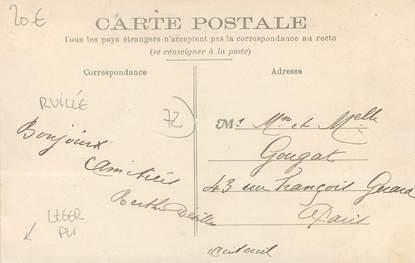 20€
CARTE POSTALE
Tous les pays étrangers n'acceptent pas la correspondance au recto
(se renseigner à la poste)
Correspondance
Adresse
RUILLÉ
72
Bonjour
Amitiés
Berthe
LEGER
PLI
M. Mme et Melle
Gougat
43 rue François Gerard
Paris
Auteuil